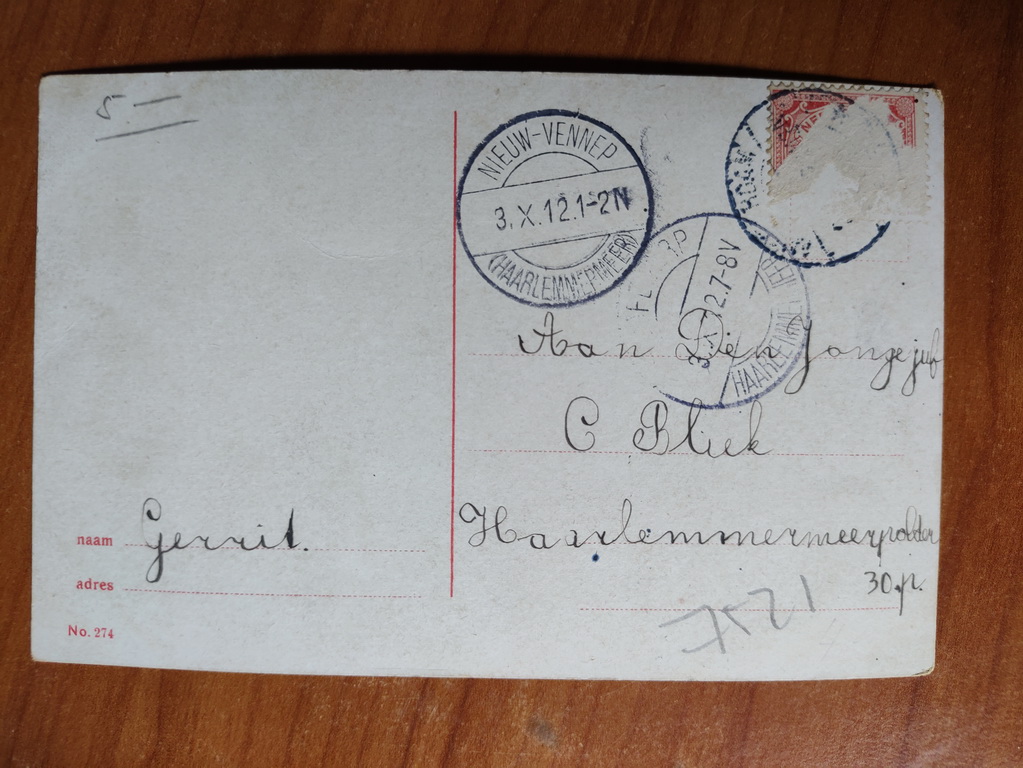 5.—
NIEUW-VENNEP
3.X.12.1-2N
(HAARLEMMERMEER)
3.X.12.7-8V
Aan Den Jongejuf
C Bliek
Haarlemmermeerpolder
30.p.
naam Gerrit.
adres
No. 274